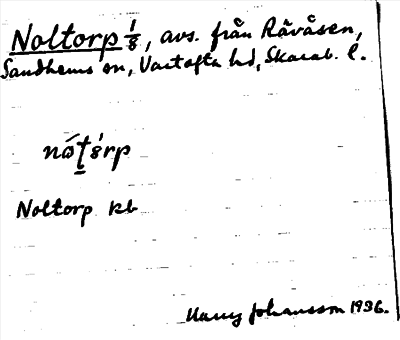 Noltorp 1/8, avs. från Råvåsen,
Sandhems sn, Vartofta hd, Skarab. l.
Noltorp kb
Harry Johansson 1936.